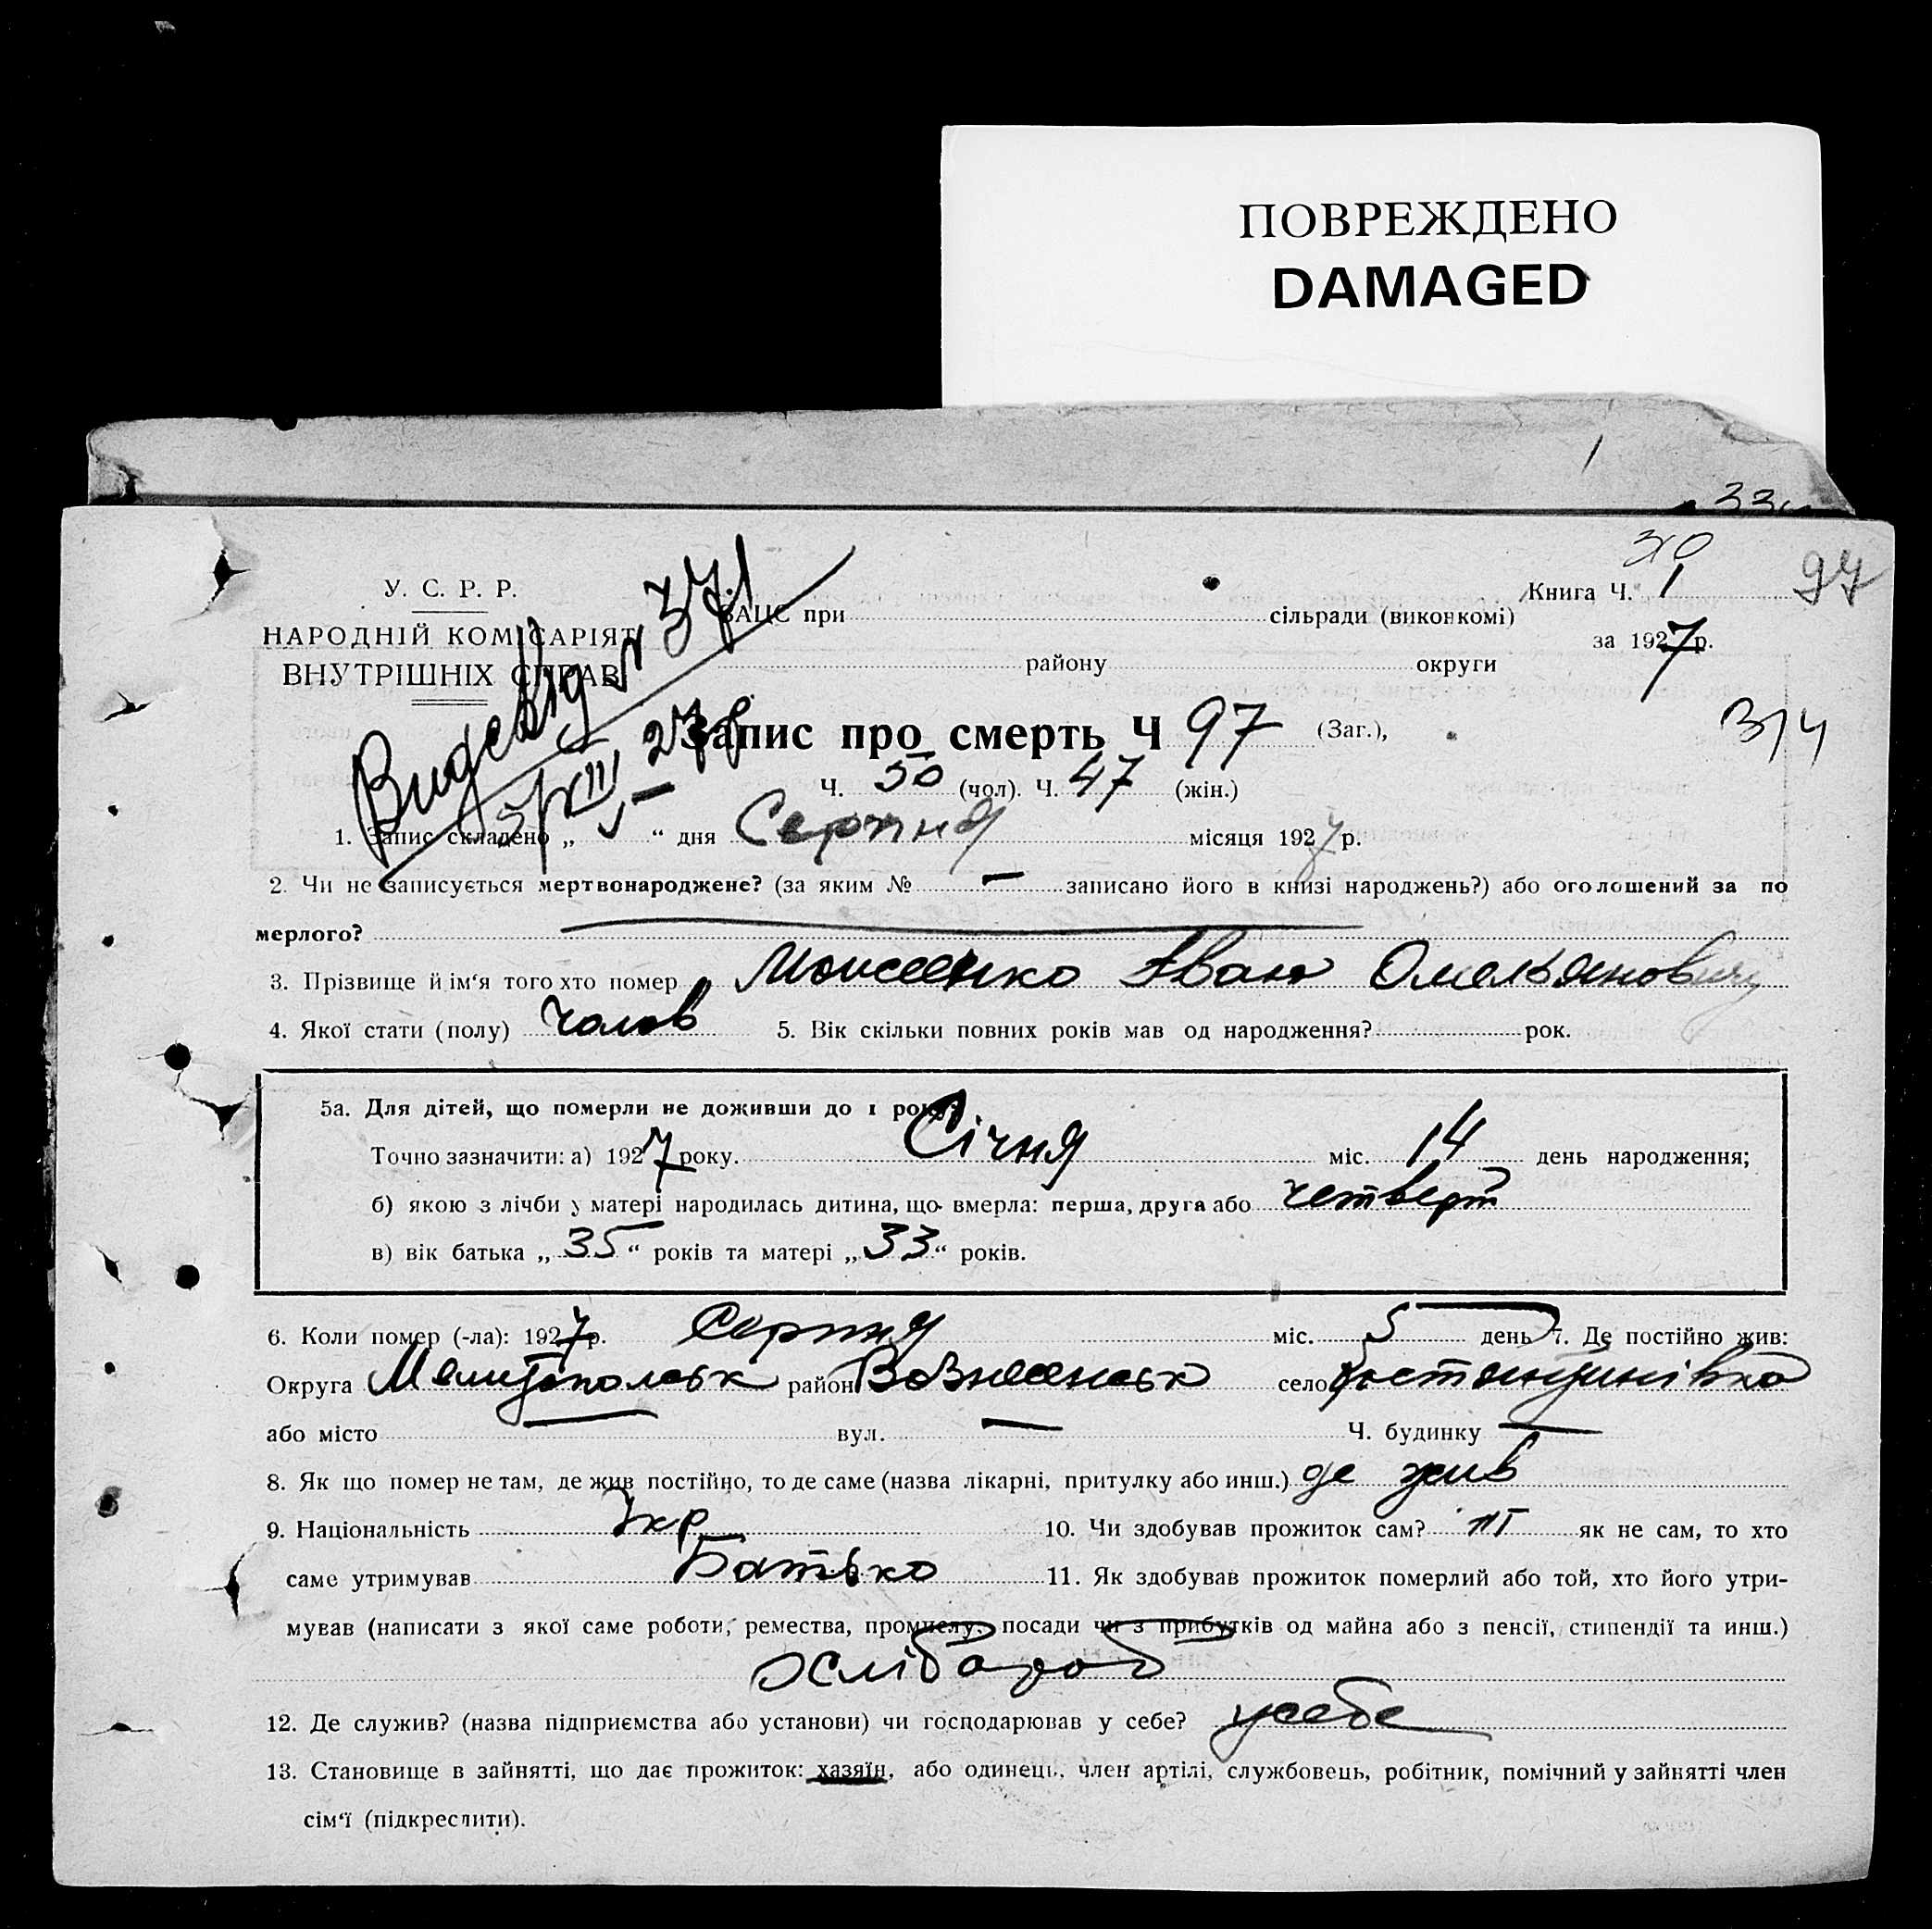 ПОВРЕЖДЕНО
DAMAGED
310
97
У. С. Р. Р.
НАРОДНІЙ КОМІСАРІЯТ
ВНУТРІШНІХ СПРАВ
ЗАЦС при сільради (виконкомі)
району округи
Книга Ч. 1
за 1927 р.
314
№ 371
5/VIII – 27 р
Запис про смерть Ч 97 (Заг.),
Ч. 50 (чол). Ч. 47 (жін.)
1. Запис складено „ 5 “ дня Серпня місяця 1927 р.
2. Чи не записується мертвонароджене? (за яким № — записано його в книзі народжень?) або оголошений за по
мерлого? —
3. Прізвище й ім‘я того хто помер Моисеенко Іван Омельянович
4. Якої стати (полу) Чолов 5. Вік скільки повних років мав од народження? рок.
5а. Для дітей, що померли не доживши до 1 року:
Точно зазначити: а) 1927 року. Січня міс. 14 день народження;
б) якою з лічби у матері народилась дитина, що вмерла: перша, друга або четверт
в) вік батька „ 35 “ років та матері „ 33 “ років.
6. Коли помер (-ла): 1927 р. Серпня міс. 5 день 7. Де постійно жив:
Округа Мелитопольськ район Вознесенськ село Костянтинівка
або місто — вул. — Ч. будинку —
8. Як що помер не там, де жив постійно, то де саме (назва лікарні, притулку або инш.) де жив
9. Національність Укр 10. Чи здобував прожиток сам? ні як не сам, то хто
саме утримував Батько 11. Як здобував прожиток померлий або той, хто його утри-
мував (написати з якої саме роботи, ремества, промислу, посади чи з прибутків од майна або з пенсії, стипендії та инш.)
хлібороб
12. Де служив? (назва підприємства або установи) чи господарював у себе? у себе
13. Становище в зайнятті, що дає прожиток: хазяїн, або одинець, член артілі, службовець, робітник, помічний у зайнятті член
сім‘ї (підкреслити).